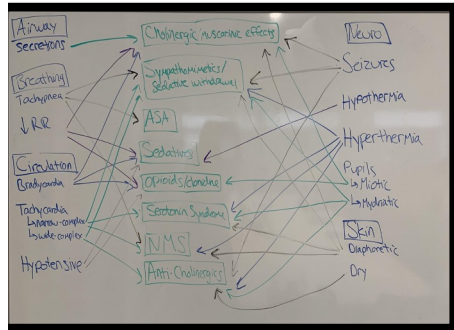 Airway
secretions
Breathing
Tachypnea
↓RR
Circulation
Bradycardia
Tachycardia
↳narrow-complex
↳wide-complex
Hypotensive
Cholinergic/muscarinic effects
Sympathomimetics/
Sedative withdrawal
ASA
Sedatives
Opioids/clonidine
Serotonin Syndrome
NMS
Anti-Cholinergics
Neuro
Seizures
Hypothermia
Hyperthermia
Pupils
↳Miotic
↳Mydriatic
Skin
Diaphoretic
Dry